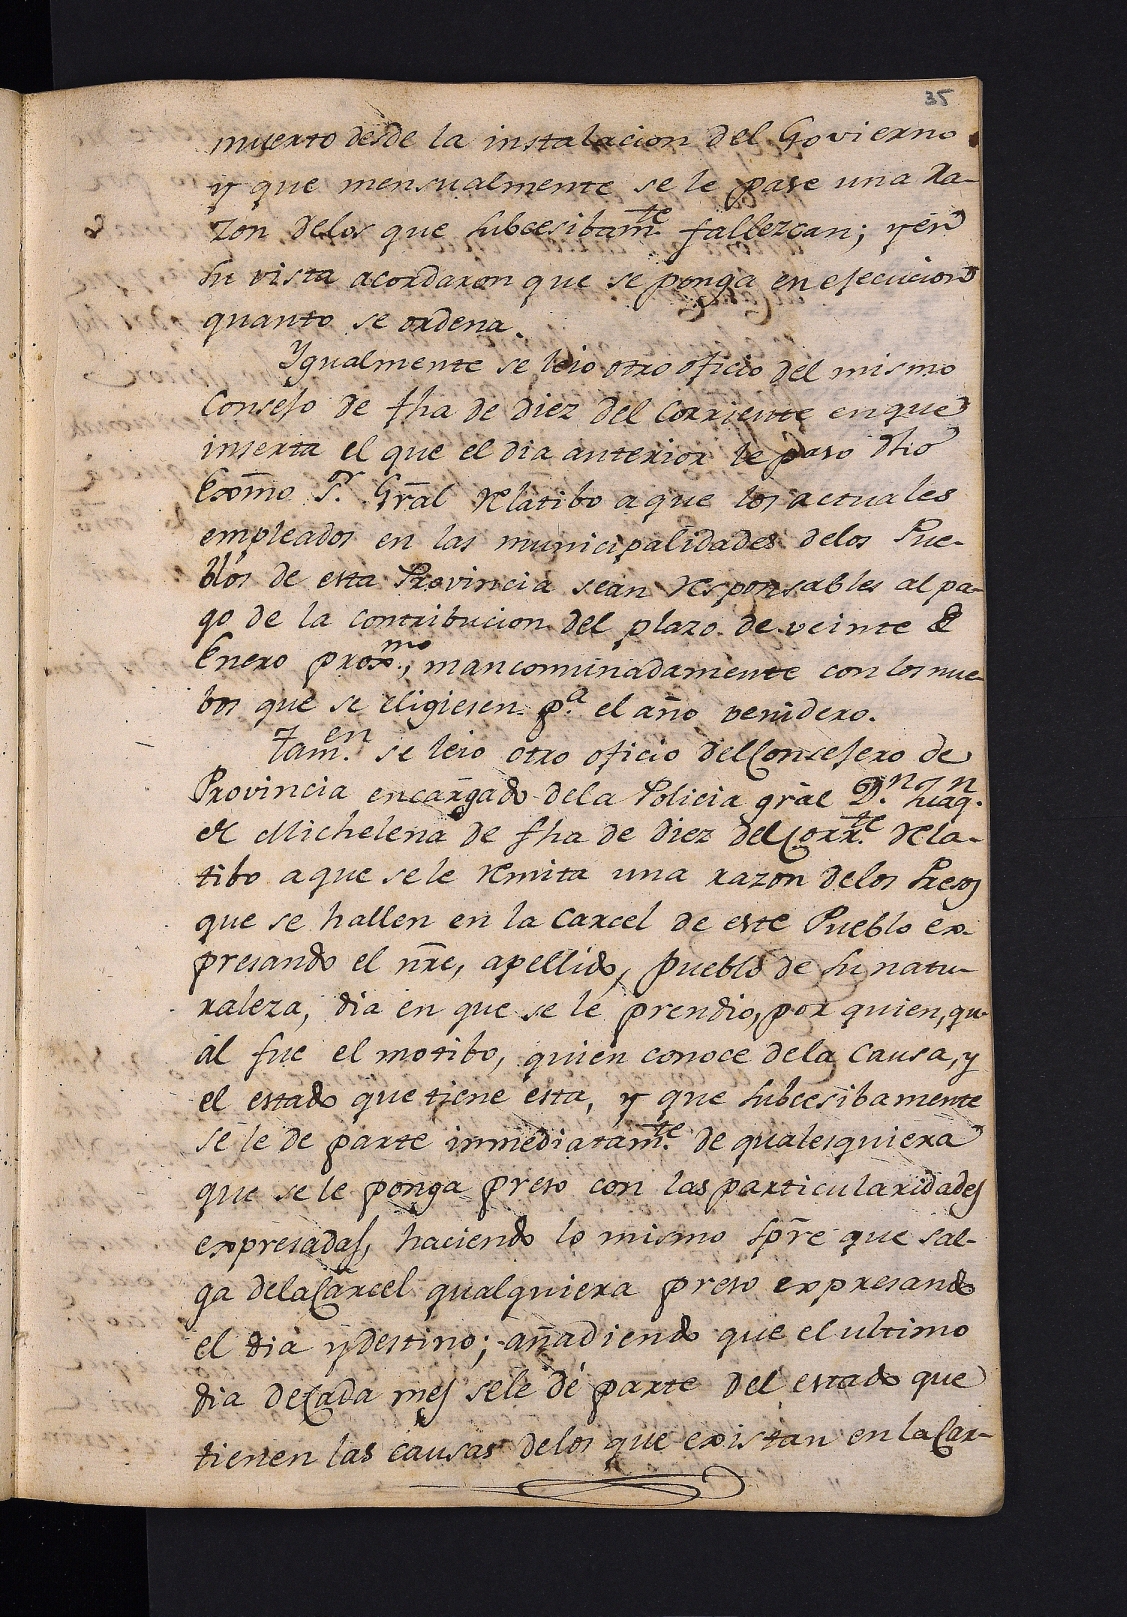 35
muerto desde la instalacion del Govierno
y que mensualmente se le pase una Ra-
zon delos que subcesibam.te fallezcan; y en
su vista acordaron que se ponga en ejecucion
quanto se ordena.
Ygualmente se leio otro oficio del mismo
Consejo de fha de diez del Corriente en que
inserta el que el dia anterior le paso dho
Exōmo Sr. Grāl relatibo a que los actuales
empleados en las municipalidades delos Pue-
blos de esta Provincia sean responsables al pa-
go de la contribucion del plazo de veinte de
Enero prox.mo, mancominadamente con los nue-
bos que se eligiesen p.a el año venidero.
Tam.en se leio otro oficio del Consejero de
Provincia encargado dela Policia grāl D.n Juaq.n
de Michelena de fha de diez del Corr.te rela-
tibo a que se le remita una razon delos Presos
que se hallen en la Carcel de este Pueblo ex-
presando el nr̄e, apellido, pueblo de su natu-
raleza, dia en que se le prendio, por quien, qu-
al fue el motibo, quien conoce dela causa, y
el estado que tiene esta, y que subcesibamente
se le de parte inmediatam.te de qualesquiera
que se le ponga preso con las particularidades
expresadas, haciendo lo mismo spr̄e que sal-
ga dela Carcel qualquiera preso expresando
el dia y destino; añadiendo que el ultimo
dia de Cada mes sele dé parte del estado que
tienen las causas delos que existan en la Car-